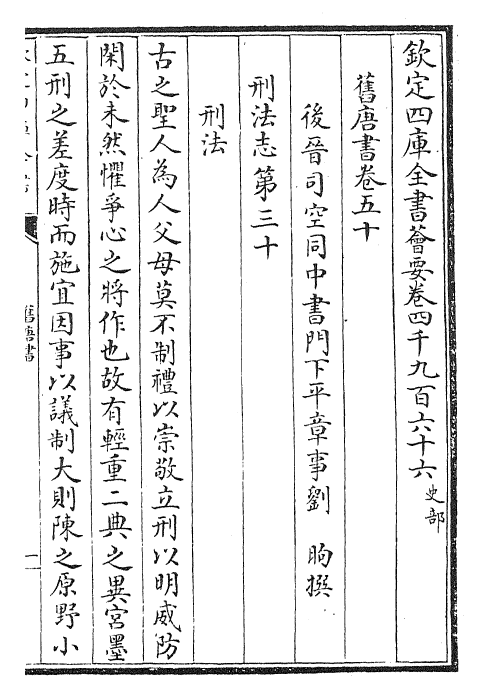 欽定四庫全書薈要卷四千九百六十六 史部
舊唐書卷五十
後晉司空同中書門下平章事劉 昫撰
刑法志第三十
刑法
古之聖人為人父母莫不制禮以崇敬立刑以明威防
閑於未然懼爭心之將作也故有輕重二典之異宮墨
五刑之差度時而施宜因事以議制大則陳之原野小
舊唐書
一